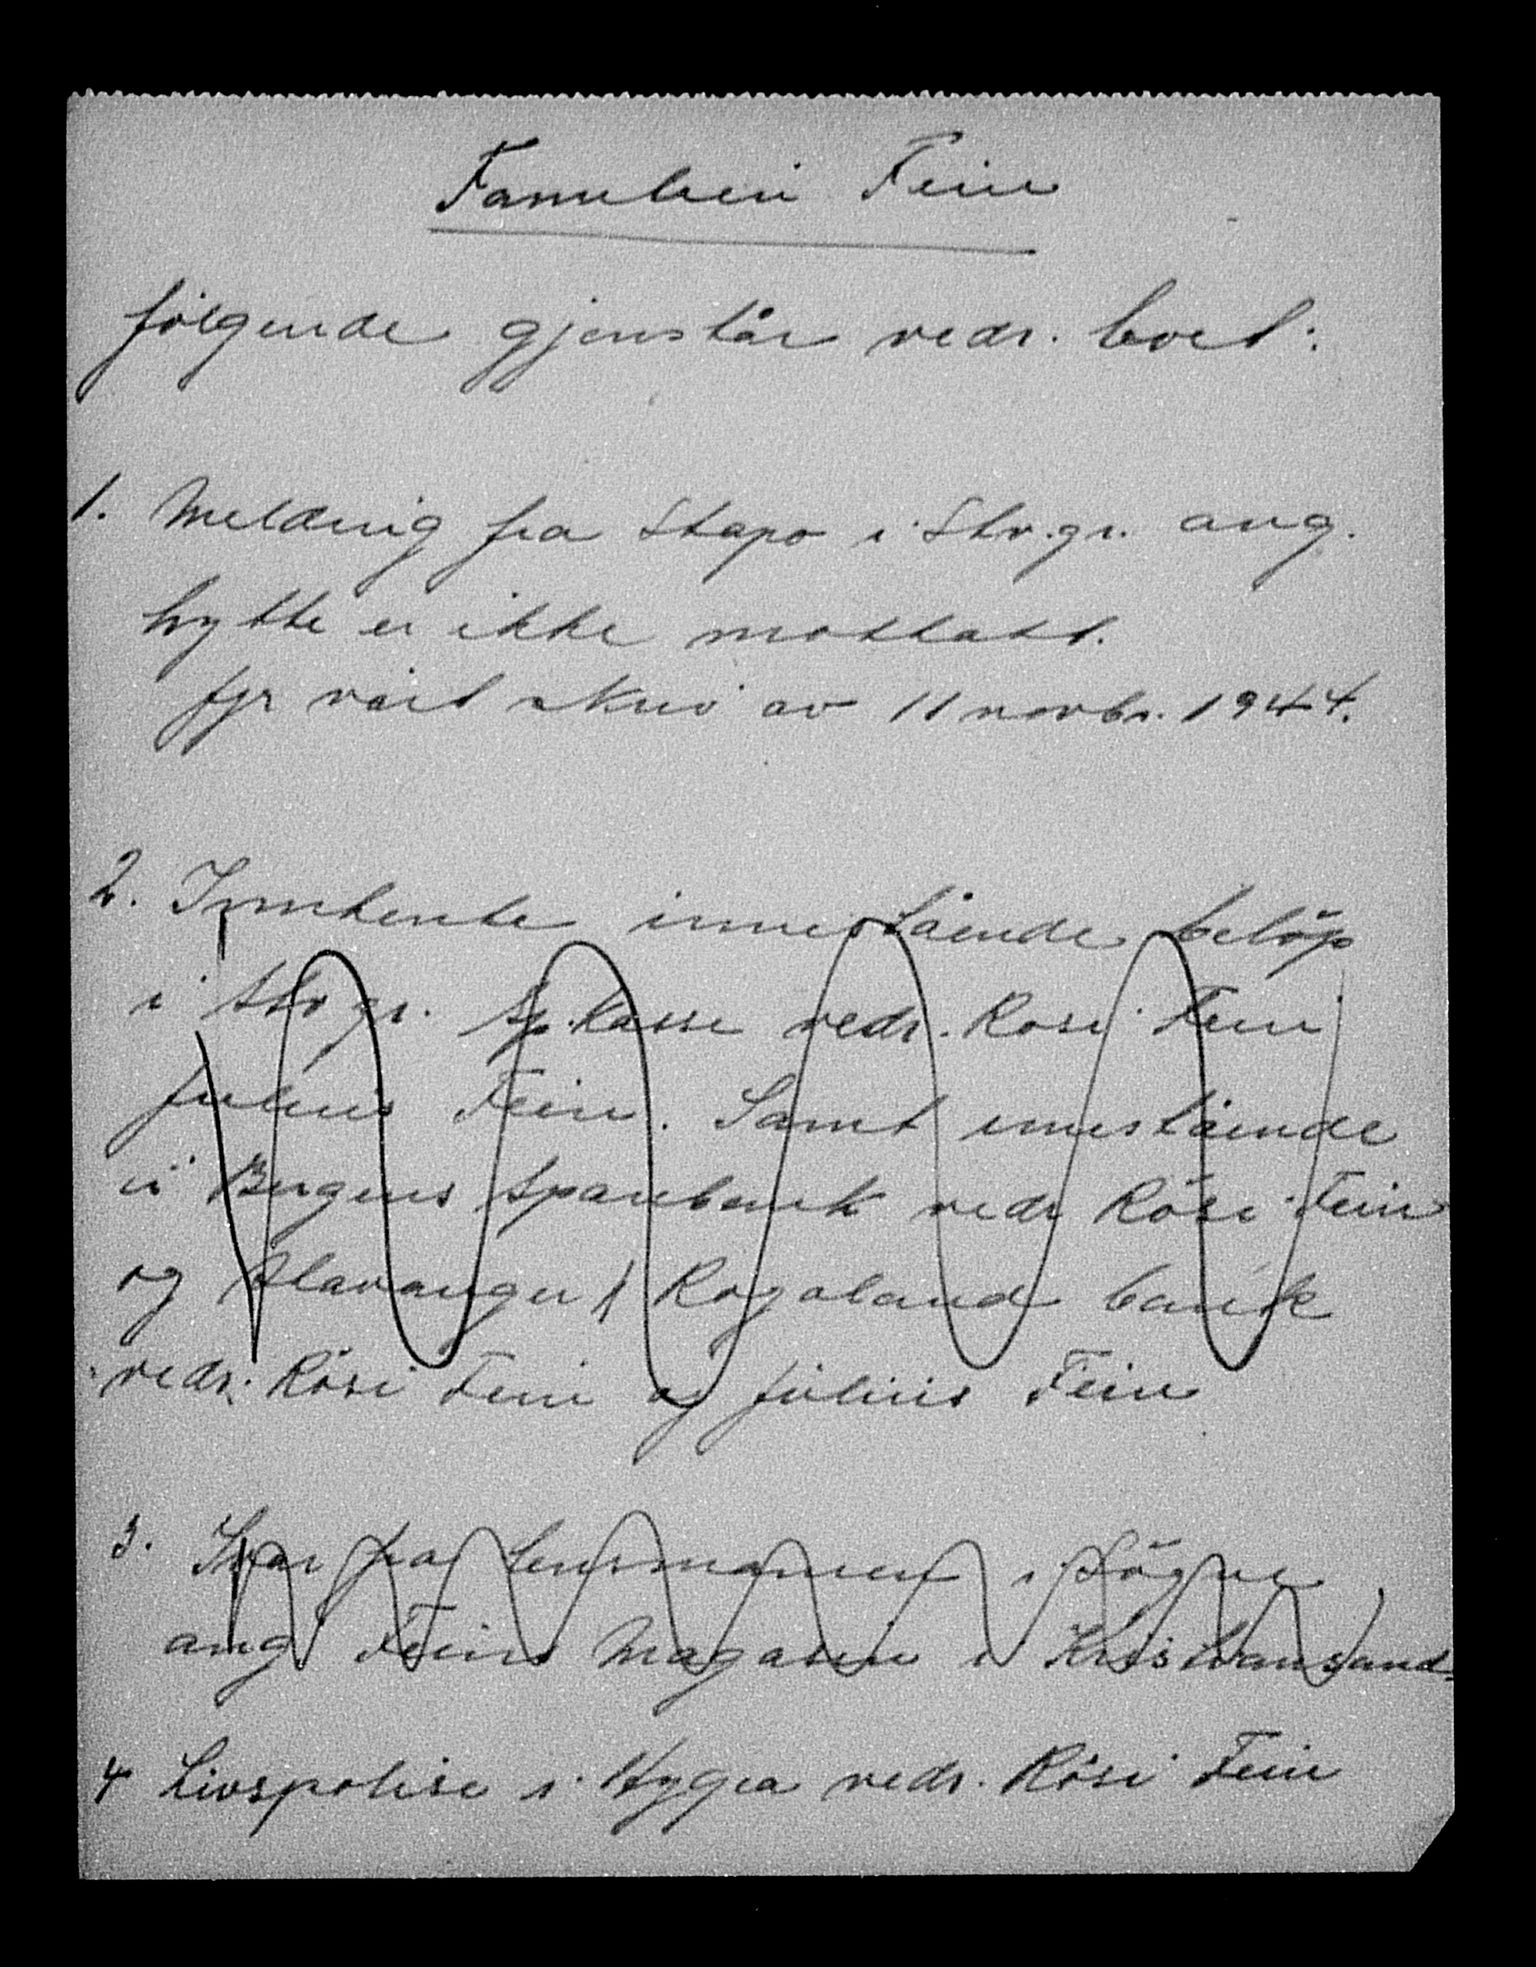 Familien Fein
følgende gjenstår vedr. boet:
1. Melding fra Stapo i Stv.gr. ang.
hytte er ikke mottatt.
fgr vårt skriv av 11 novbr. 1944.
2. Innhente innestående beløp
i Stv gr. Sp.kasse vedr. Rosi Fein
Julius Fein. Samt innestående
i Bergens Sparebank vedr Rösi Fein
og Stavanger / Rogaland bank
vedr. Rösi Fein og Julius Fein
3. Svar fra lensmannen i Søgne
ang Feins Magasin i Kristiansand
4 Livspolise i Hygea vedr. Rösi Fein